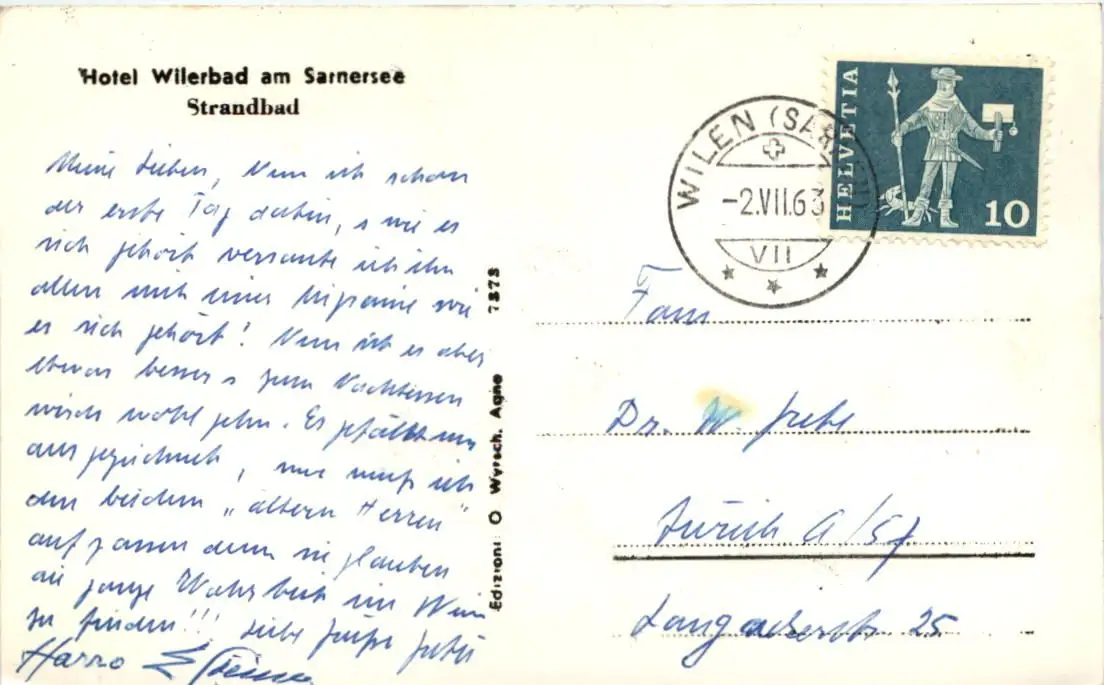 Hotel Wilerbad am Sarnersee
Strandbad
Meine Lieben, Nun ist schon
der erste Tag dahin, s wie es
sich gehört versaute ich ihn
allen mit einer Migraine wie
es sich gehört! Nun ist es aber
etwas besser s zum Nachtessen
wirds wohl gehn. Es gefällt uns
ausgezeichnet, nur muß ich
den beiden „ältern Herren"
aufpassen denn sie glauben
die ganze Wahrheit im Wein
zu finden!!! Liebe Grüße
Harro
Edizioni O Wyrsch. Agno 7373
WILEN (SARNEN)
-2.VII.63
VII
HELVETIA
10
Fam
Dr. W.
Zürich
25